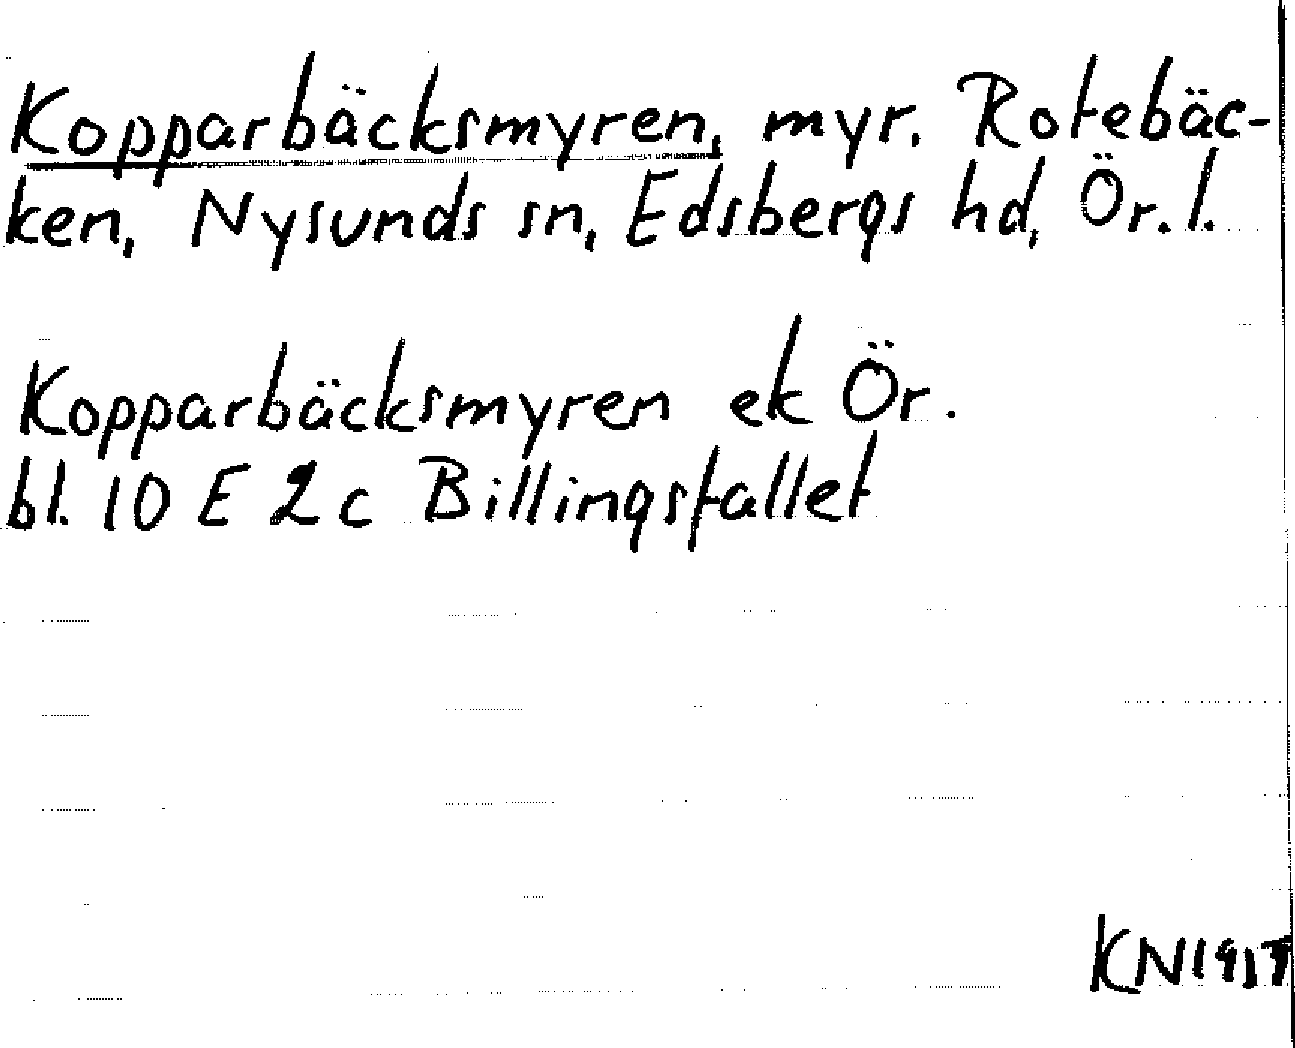 Kopparbäcksmyren, myr. Rotebäc-
ken, Nysunds sn, Edsbergs hd, Ör. l.
Kopparbäcksmyren ek Ör.
bl. 10 E 2 c Billingsfallet